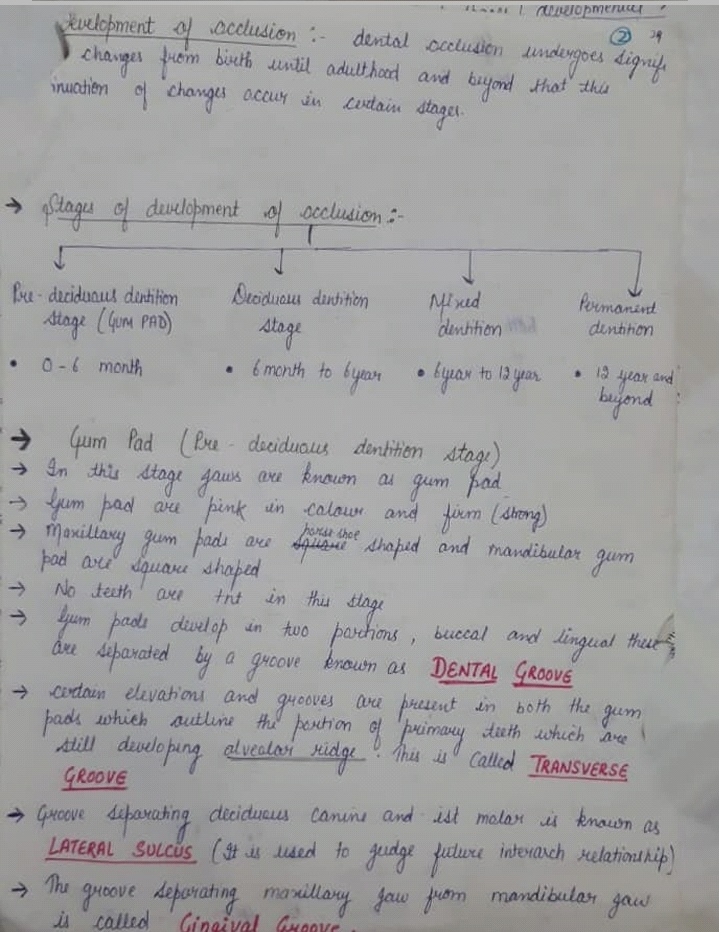 developmental
②
Development of occlusion :- dental occlusion undergoes signifi
changes from birth until adulthood and beyond that this
inuation of changes occur in certain stages.
→ Stages of development of occlusion :-
Pre-deciduous dentition stage (GUM PAD)
Deciduous dentition stage
Mixed dentition
Permanent dentition
• 0-6 month
• 6 month to 6 year
• 6 year to 12 year
• 12 year and beyond
→ Gum Pad (Pre-deciduous dentition stage)
→ In this stage jaws are known as gum pad
→ Gum pad are pink in colour and firm (strong)
→ Maxillary gum pads are horse shoe shaped and mandibular gum
pad are square shaped
→ No teeth are tnt in this stage
→ Gum pads develop in two portions, buccal and lingual these
are separated by a groove known as DENTAL GROOVE
→ certain elevations and grooves are present in both the gum
pads which outline the portion of primary teeth which are
still developing alveolar ridge. This is called TRANSVERSE
GROOVE
→ Groove separating deciduous canine and ist molar is known as
LATERAL SULCUS (It is used to judge future interarch relationship)
→ The groove separating maxillary jaw from mandibular jaw
is called Gingival Groove.